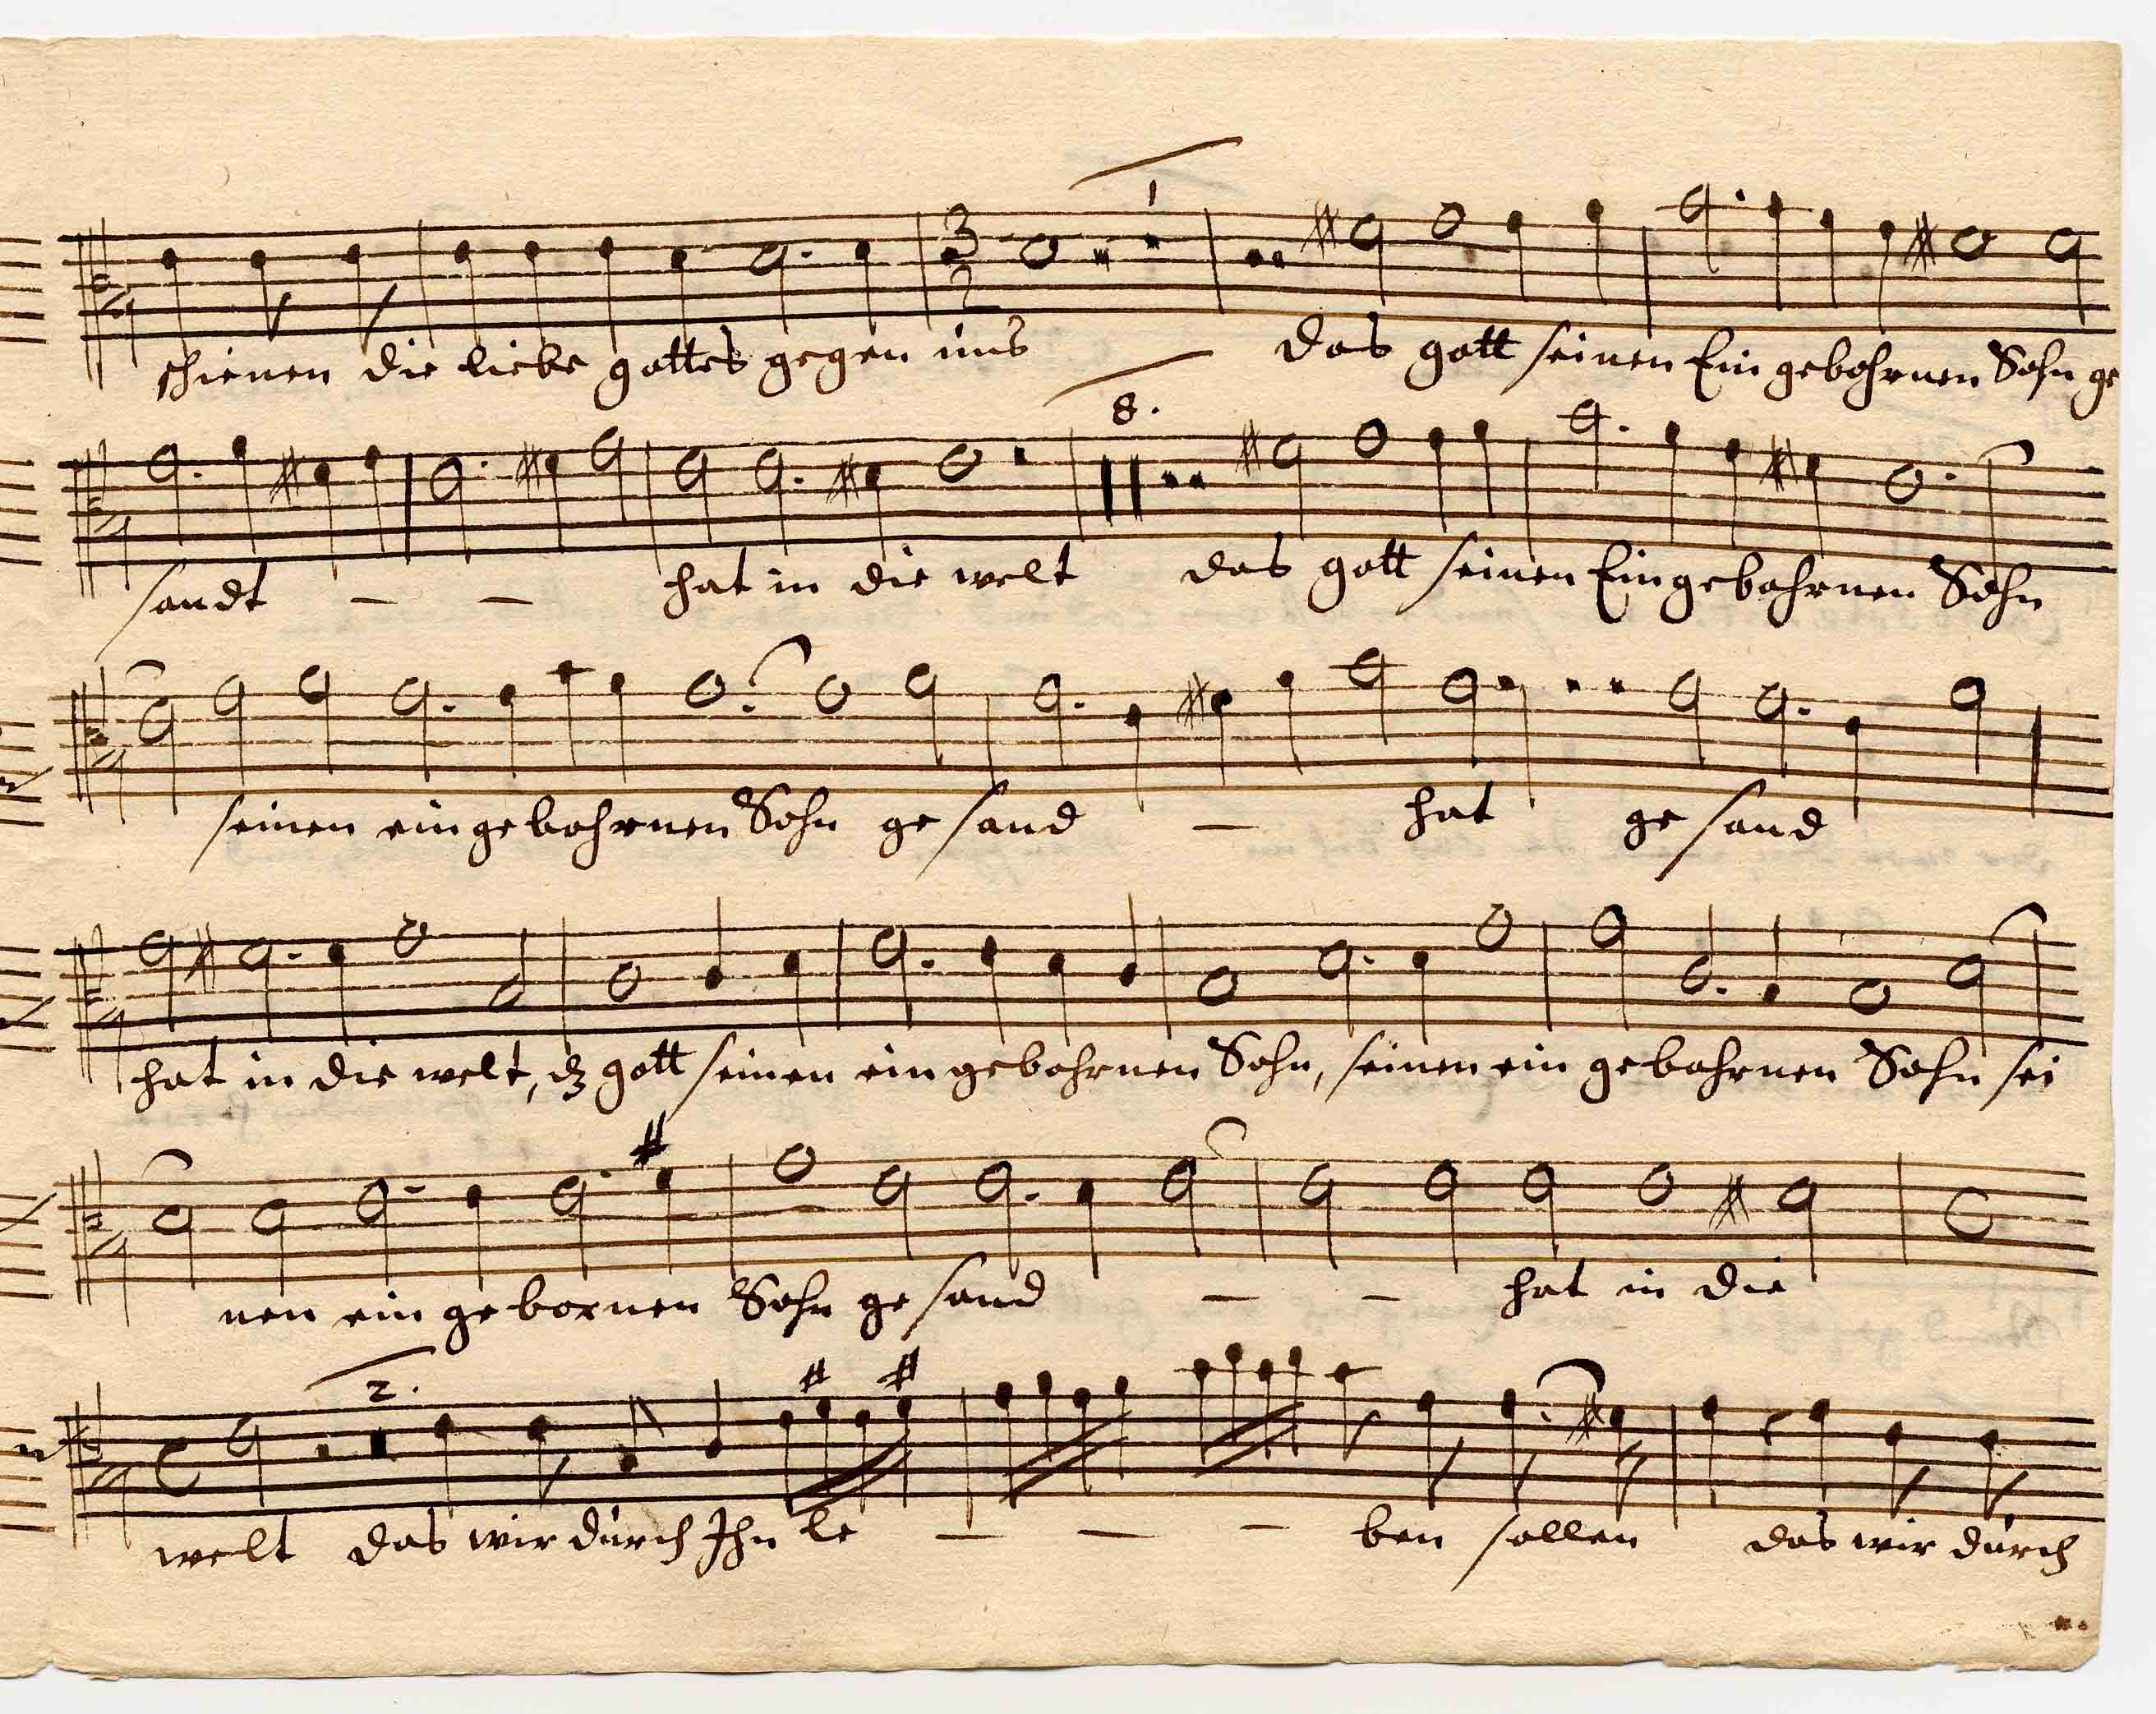 schienen die liebe gottes gegen uns das gott seinen Ein gebohrnen Sohn ge
sandt – – hat in die welt das gott seinen Eingebohrnen Sohn
seinen ein gebohrnen Sohn ge sand – hat ge sand
hat in die welt, dz gott seinen ein gebohrnen Sohn, seinen ein gebohrnen Sohn sei
nen ein ge bornen Sohn ge sand – – hat in die
welt das wir durch Ihn le – – – ben sollen das wir durch